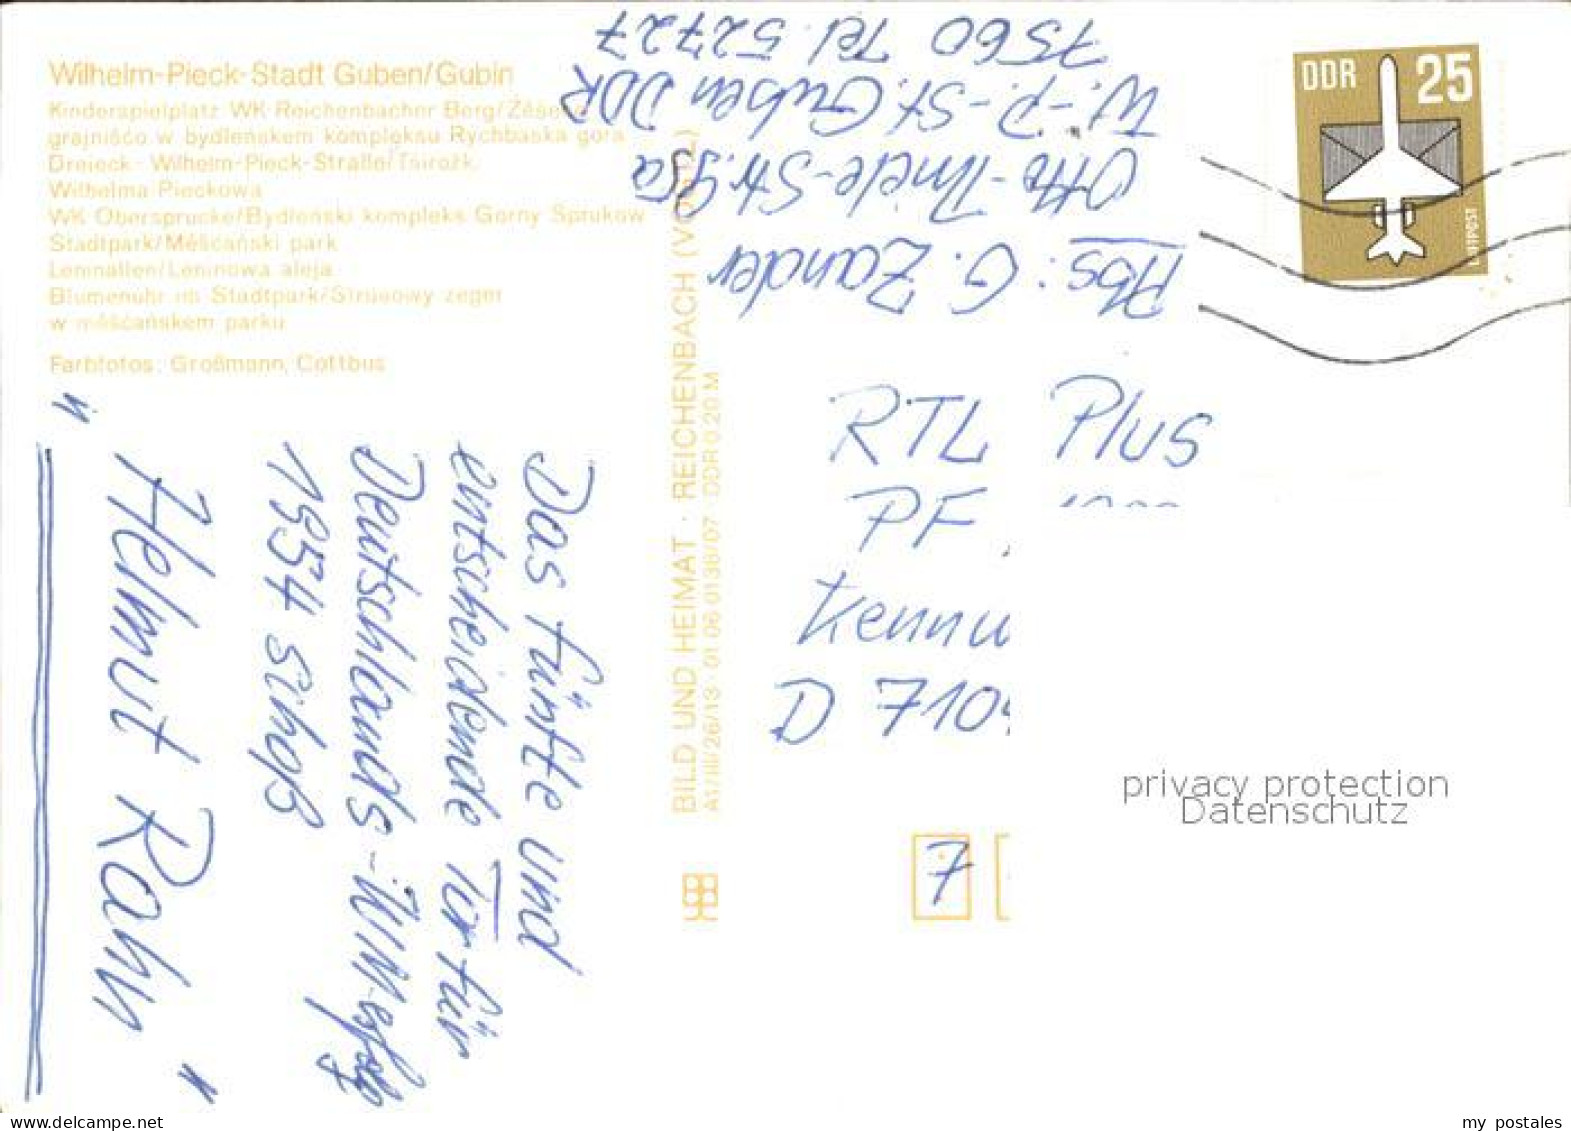 Wilhelm-Pieck-Stadt Guben/Gubin
Kinderspielplatz WK Reichenbacher Berg/
grajnišćo w bydleńskem kompleksu Rychbaska gora
Dreieck - Wilhelm-Pieck-Straße/Tśirožk
Wilhelma Pieckowa
WK Obersprucke/Bydleński kompleks Gorny Sprukow
Stadtpark/Měšćański park
Leninallee/Leninowa aleja
Blumenuhr im Stadtpark/ zeger
w měšćańskem parku
Farbfotos: Großmann, Cottbus
Das fünfte und
entscheidende Tor für
Deutschlands-WM-Erfolg
1954 schoß
" Helmut Rahn "
BILD UND HEIMAT · REICHENBACH (VOGTL)
A1/III/26/13 · 01 06 0136/07 DDR 0,20 M
Abs: G. Zander
Otto-Thiele-Str. 95a
W.-P.-St. Guben DDR
7560 Tel. 52727
DDR 25
LUFTPOST
RTL Plus
PF
Kennw
D 710
7
privacy protection
Datenschutz
www.delcampe.net
my_postales